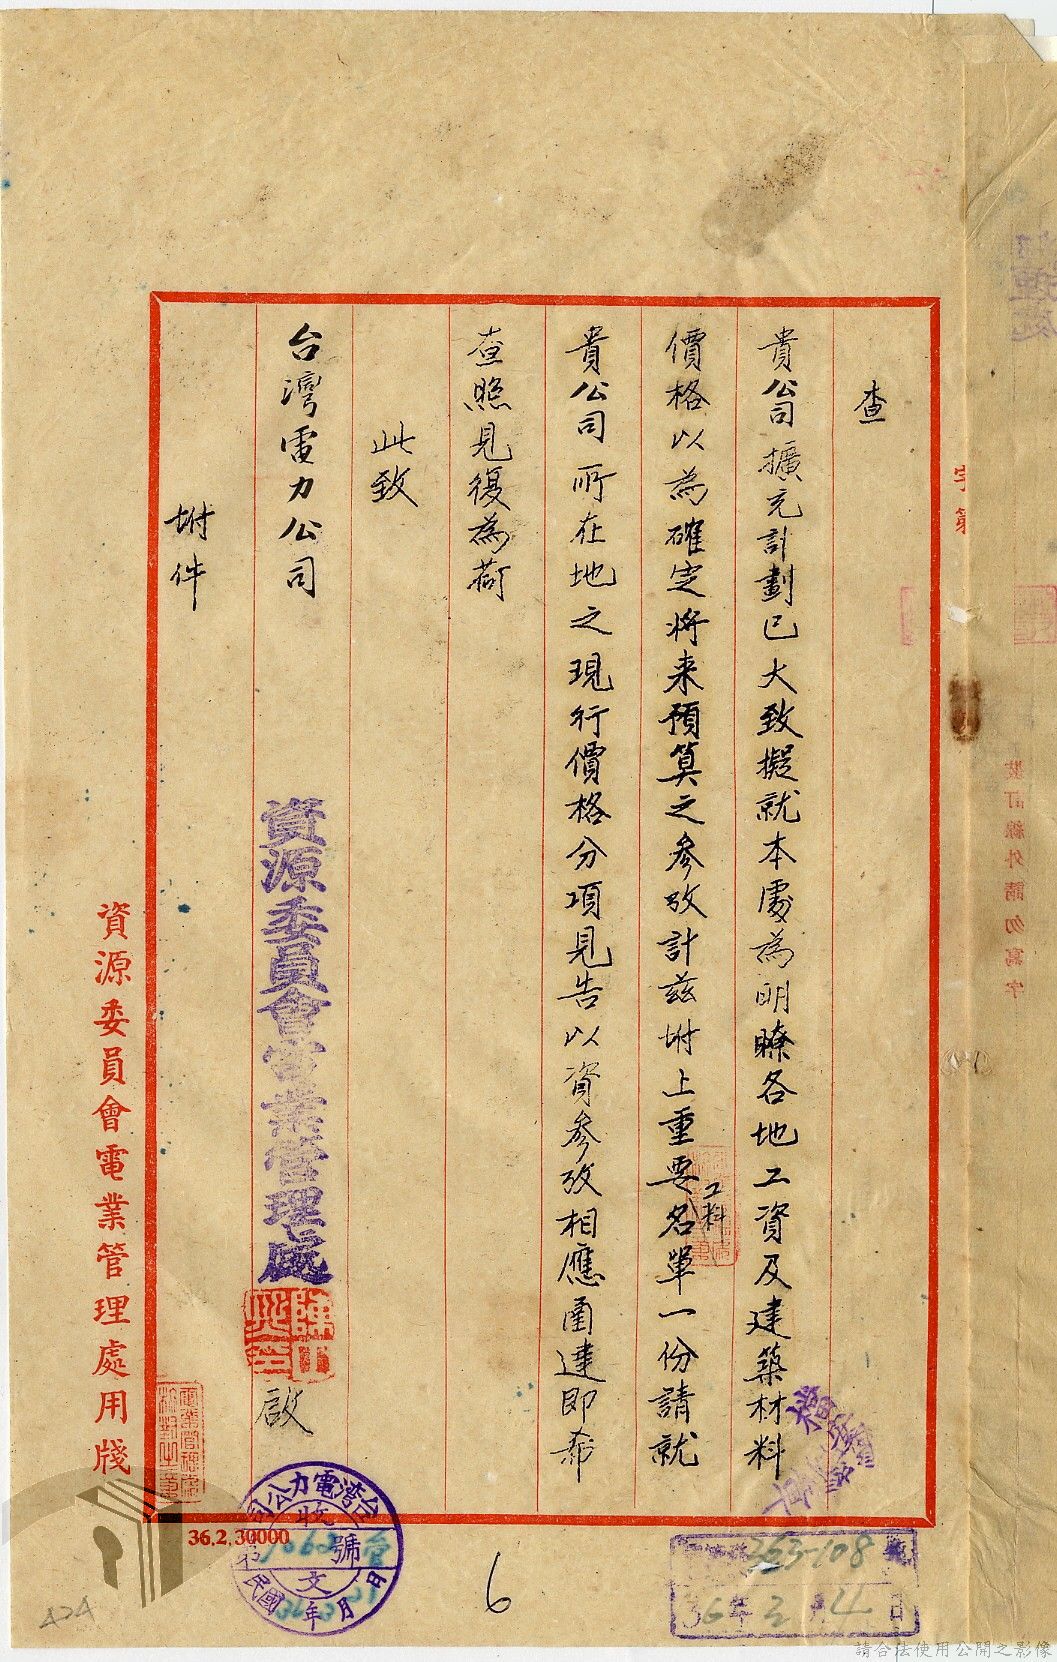 查
貴公司擴充計劃已大致擬就本處為明瞭各地工資及建築材料
價格以為確定將來預算之參攷計茲坿上重要工料名單一份請就
貴公司所在地之現行價格分項見告以資參攷相應函達即希
查照見復為荷
此致
台灣電力公司
資源委員會電業管理處
啟
坿件
資源委員會電業管理處用牋
36.2.30000
字第
裝訂線外請勿寫字
台灣電力公司
收
號
文
民國
年
月
日
363-108
36年3月4日
6
請合法使用公開之影像